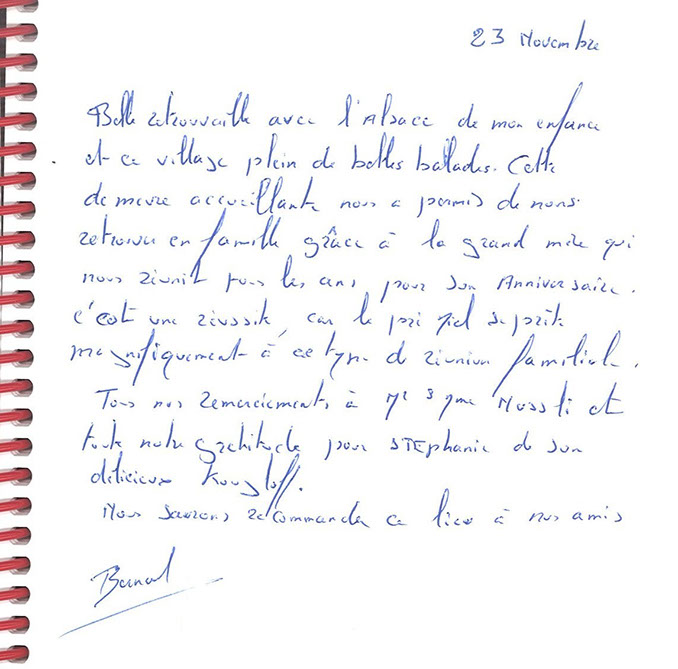 23 Novembre
Belle retrouvaille avec l'Alsace de mon enfance
et ce village plein de belles balades. Cette
demeure accueillante nous a permis de nous
retrouver en famille grâce à la grand mère qui
nous réunit tous les ans pour son Anniversaire.
c'est une réussite, car le pré fiel se prète
magnifiquement à ce type de réunion familiale.
Tous nos remerciements à Mr & Mme et
toute notre gratitude pour STEphanie de son
délicieux Kougloff.
Nous saurons recommander ce lieu à nos amis